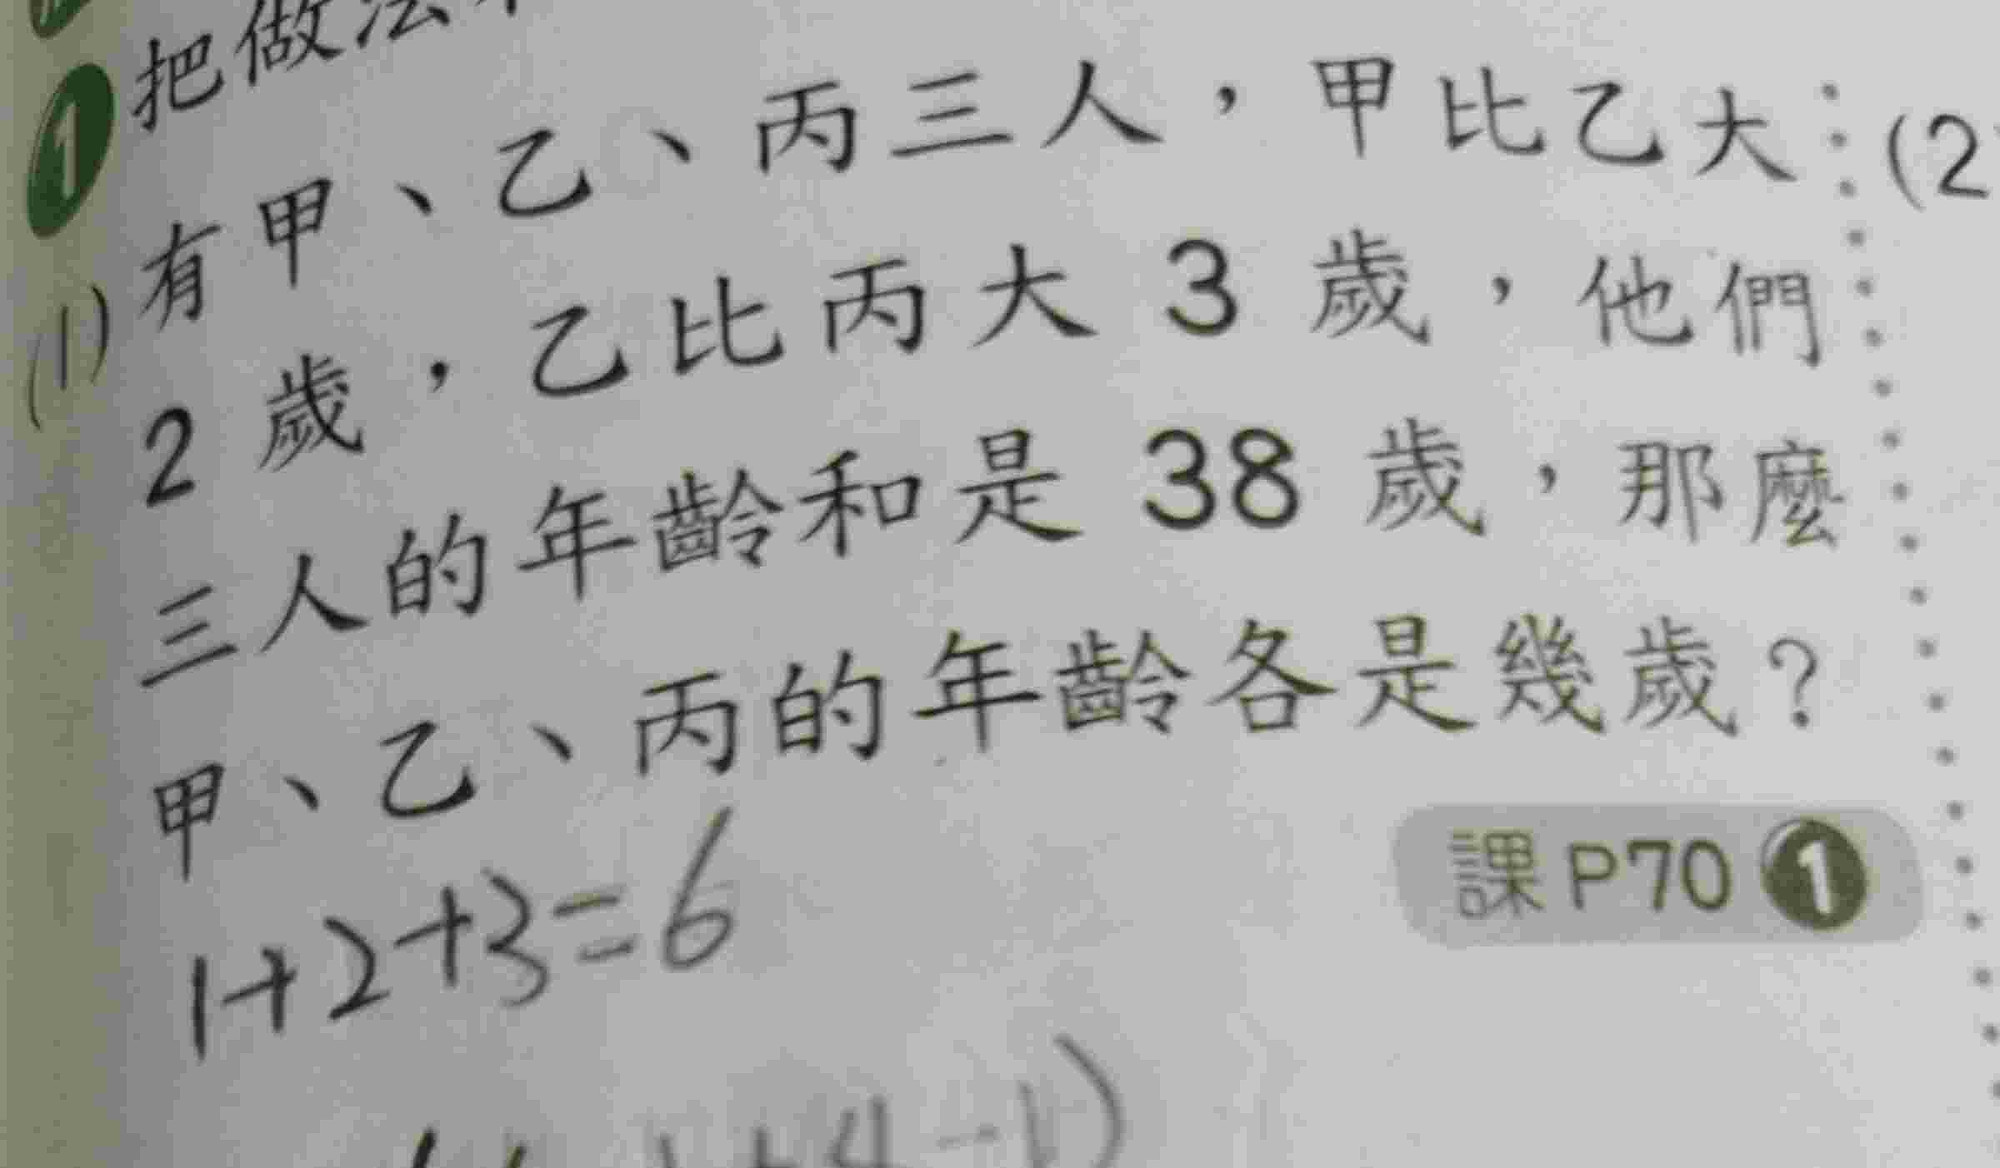 把做法
1
(1) 有甲、乙、丙三人，甲比乙大
2 歲，乙比丙大 3 歲，他們
三人的年齡和是 38 歲，那麼
甲、乙、丙的年齡各是幾歲？
課P70 1
1+2+3=6
+4-1)
(2